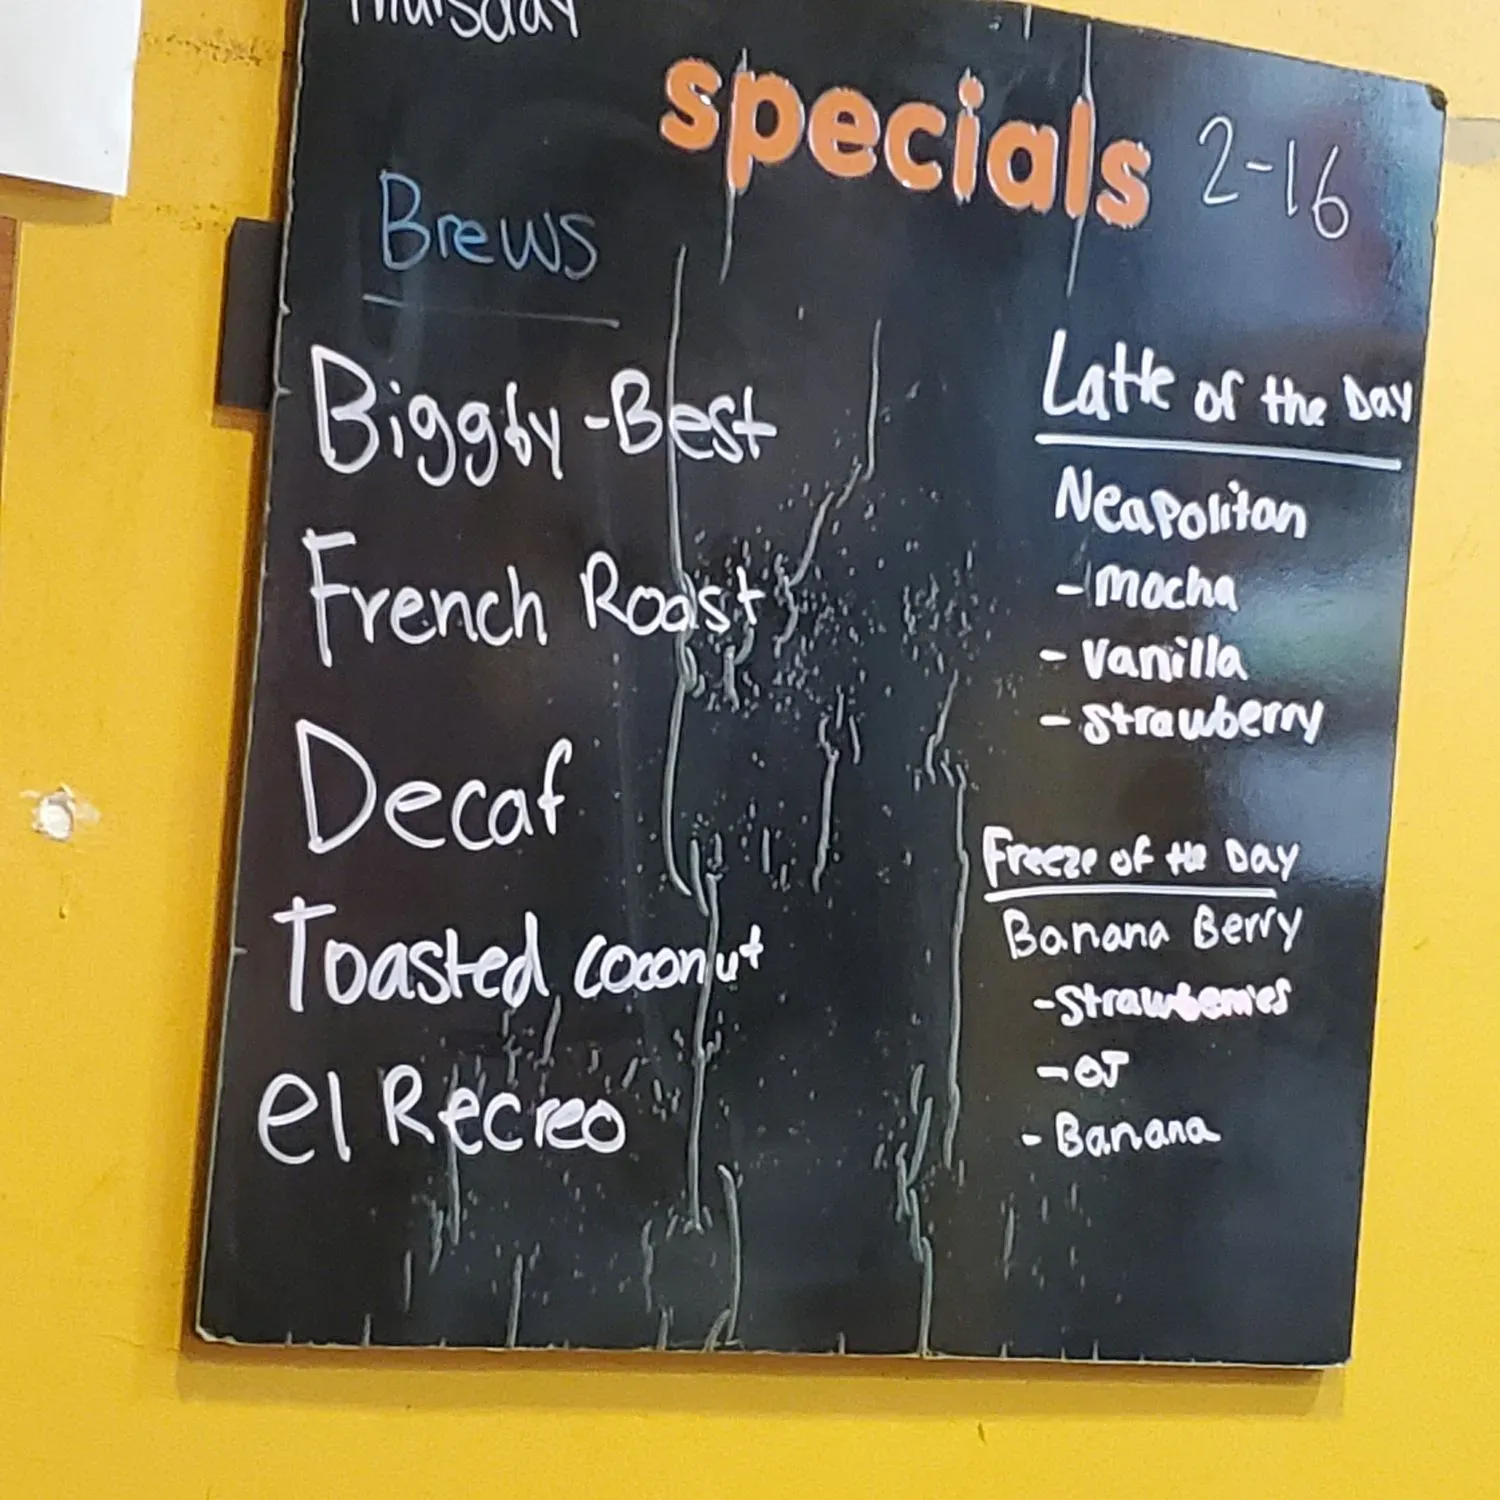 Thursday
specials 2-16
Brews
Biggby-Best
French Roast
Decaf
Toasted coconut
el Recreo
Latte of the Day
Neapolitan
- mocha
- vanilla
- strawberry
Freeze of the Day
Banana Berry
- Strawberries
- OJ
- Banana